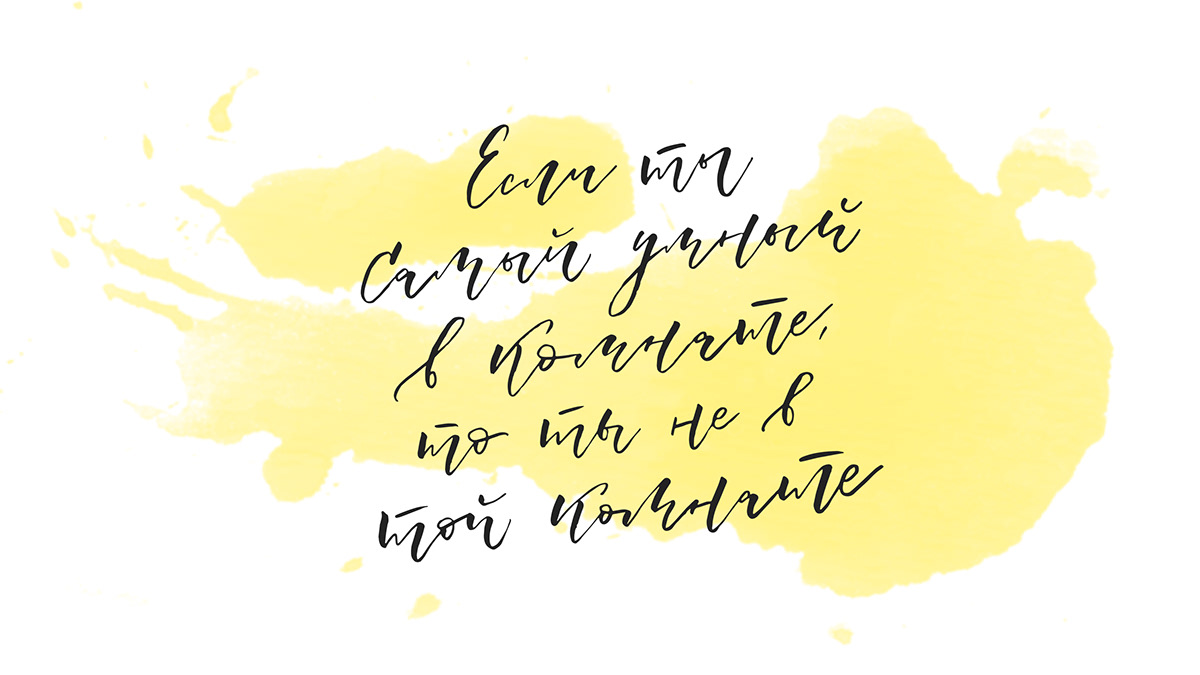 Если ты
самый умный
в комнате,
то ты не в
той комнате